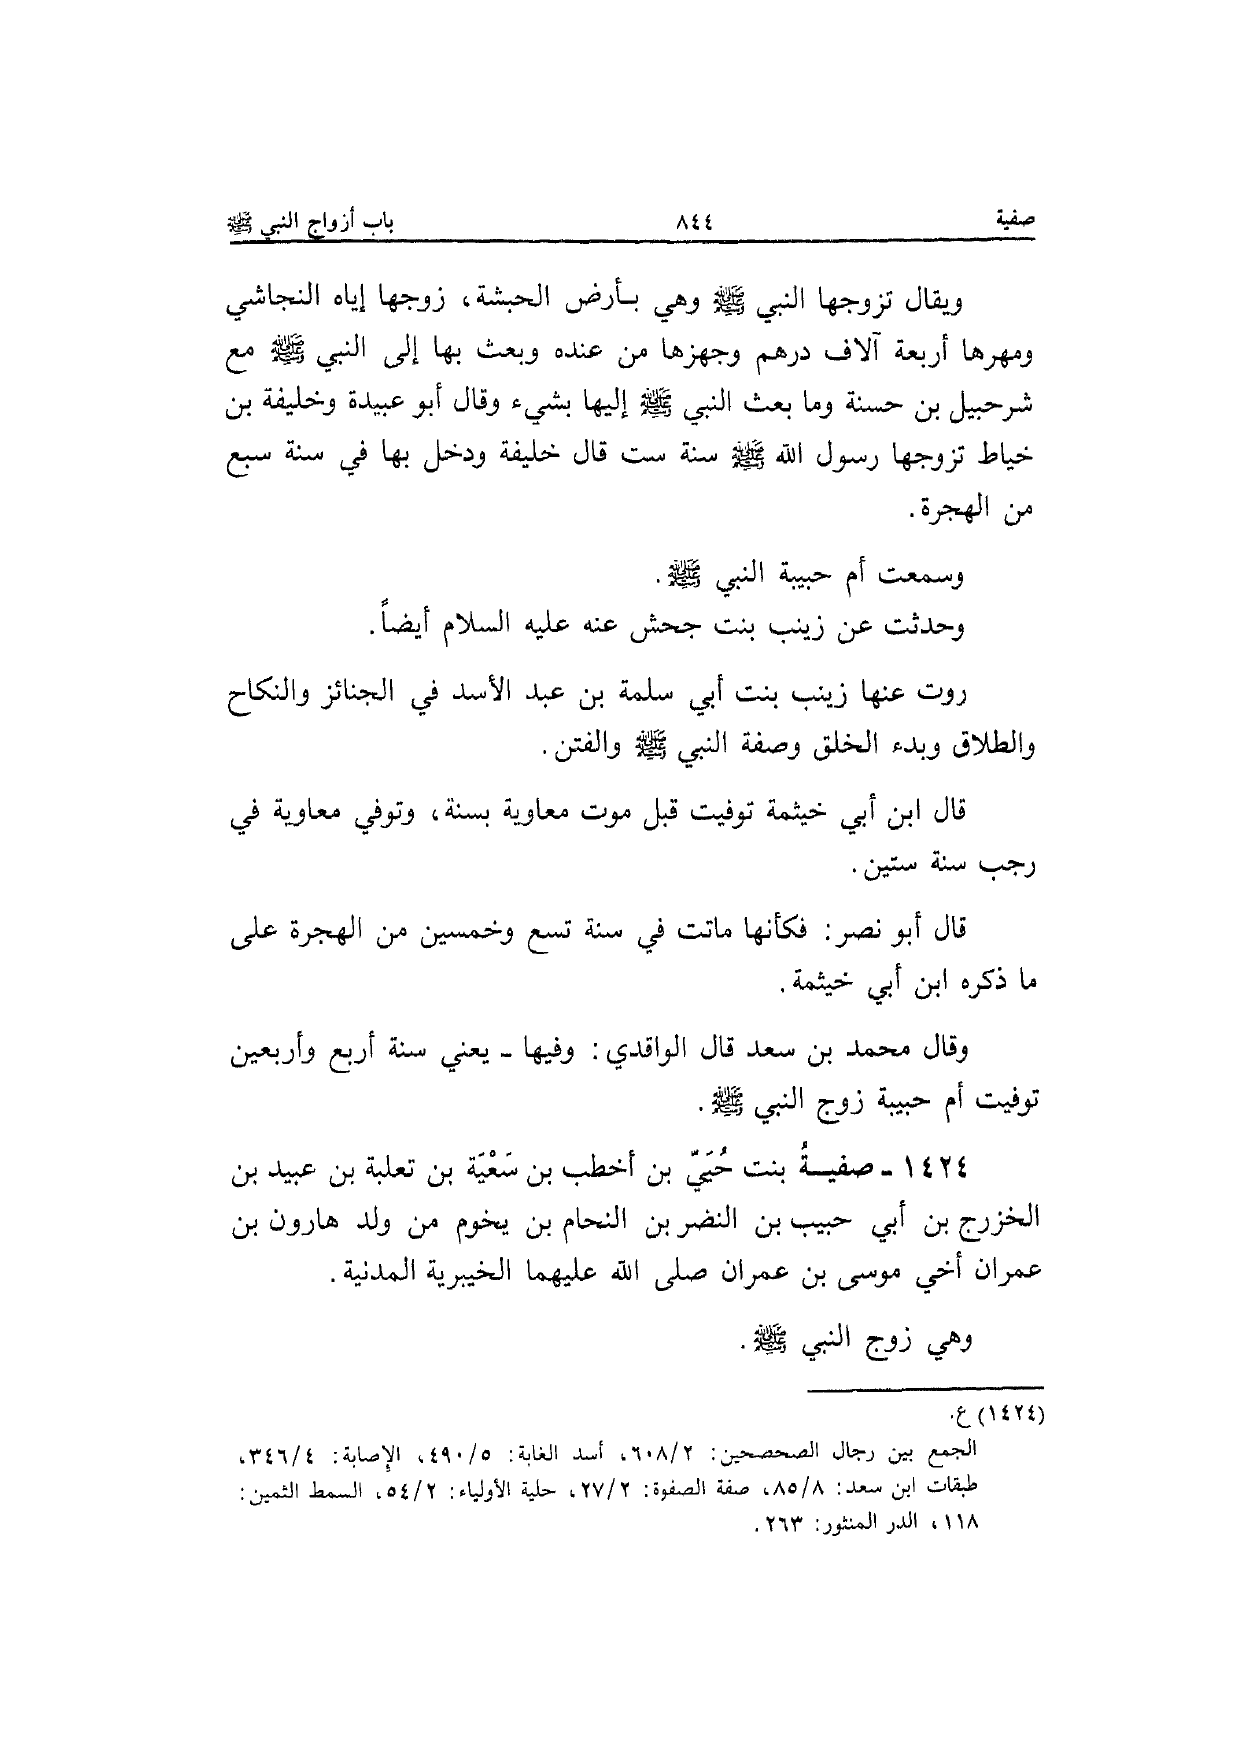 صفية ٨٤٤ باب أزواج النبي ﷺ
ويقال تزوجها النبي ﷺ وهي بأرض الحبشة، زوجها إياه النجاشي
ومهرها أربعة آلاف درهم وجهزها من عنده وبعث بها إلى النبي ﷺ مع
شرحبيل بن حسنة وما بعث النبي ﷺ إليها بشيء وقال أبو عبيدة وخليفة بن
خياط تزوجها رسول الله ﷺ سنة ست قال خليفة ودخل بها في سنة سبع
من الهجرة.
وسمعت أم حبيبة النبي ﷺ.
وحدثت عن زينب بنت جحش عنه عليه السلام أيضاً.
روت عنها زينب بنت أبي سلمة بن عبد الأسد في الجنائز والنكاح
والطلاق وبدء الخلق وصفة النبي ﷺ والفتن.
قال ابن أبي خيثمة توفيت قبل موت معاوية بسنة، وتوفي معاوية في
رجب سنة ستين.
قال أبو نصر: فكأنها ماتت في سنة تسع وخمسين من الهجرة على
ما ذكره ابن أبي خيثمة.
وقال محمد بن سعد قال الواقدي: وفيها ـ يعني سنة أربع وأربعين
توفيت أم حبيبة زوج النبي ﷺ.
١٤٢٤ ـ صفيـةُ بنت حُيَيّ بن أخطب بن سَعْيَة بن تعلبة بن عبيد بن
الخزرج بن أبي حبيب بن النضر بن النحام بن يخوم من ولد هارون بن
عمران أخي موسى بن عمران صلى الله عليهما الخيبرية المدنية.
وهي زوج النبي ﷺ.
(١٤٢٤) ع.
الجمع بين رجال الصحصحين: ٦٠٨/٢، أسد الغابة: ٤٩٠/٥، الإصابة: ٣٤٦/٤،
طبقات ابن سعد: ٨٥/٨، صفة الصفوة: ٢٧/٢، حلية الأولياء: ٥٤/٢، السمط الثمين:
١١٨، الدر المنثور: ٢٦٣.